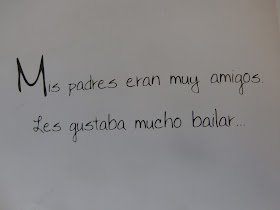 Mis padres eran muy amigos.
Les gustaba mucho bailar...